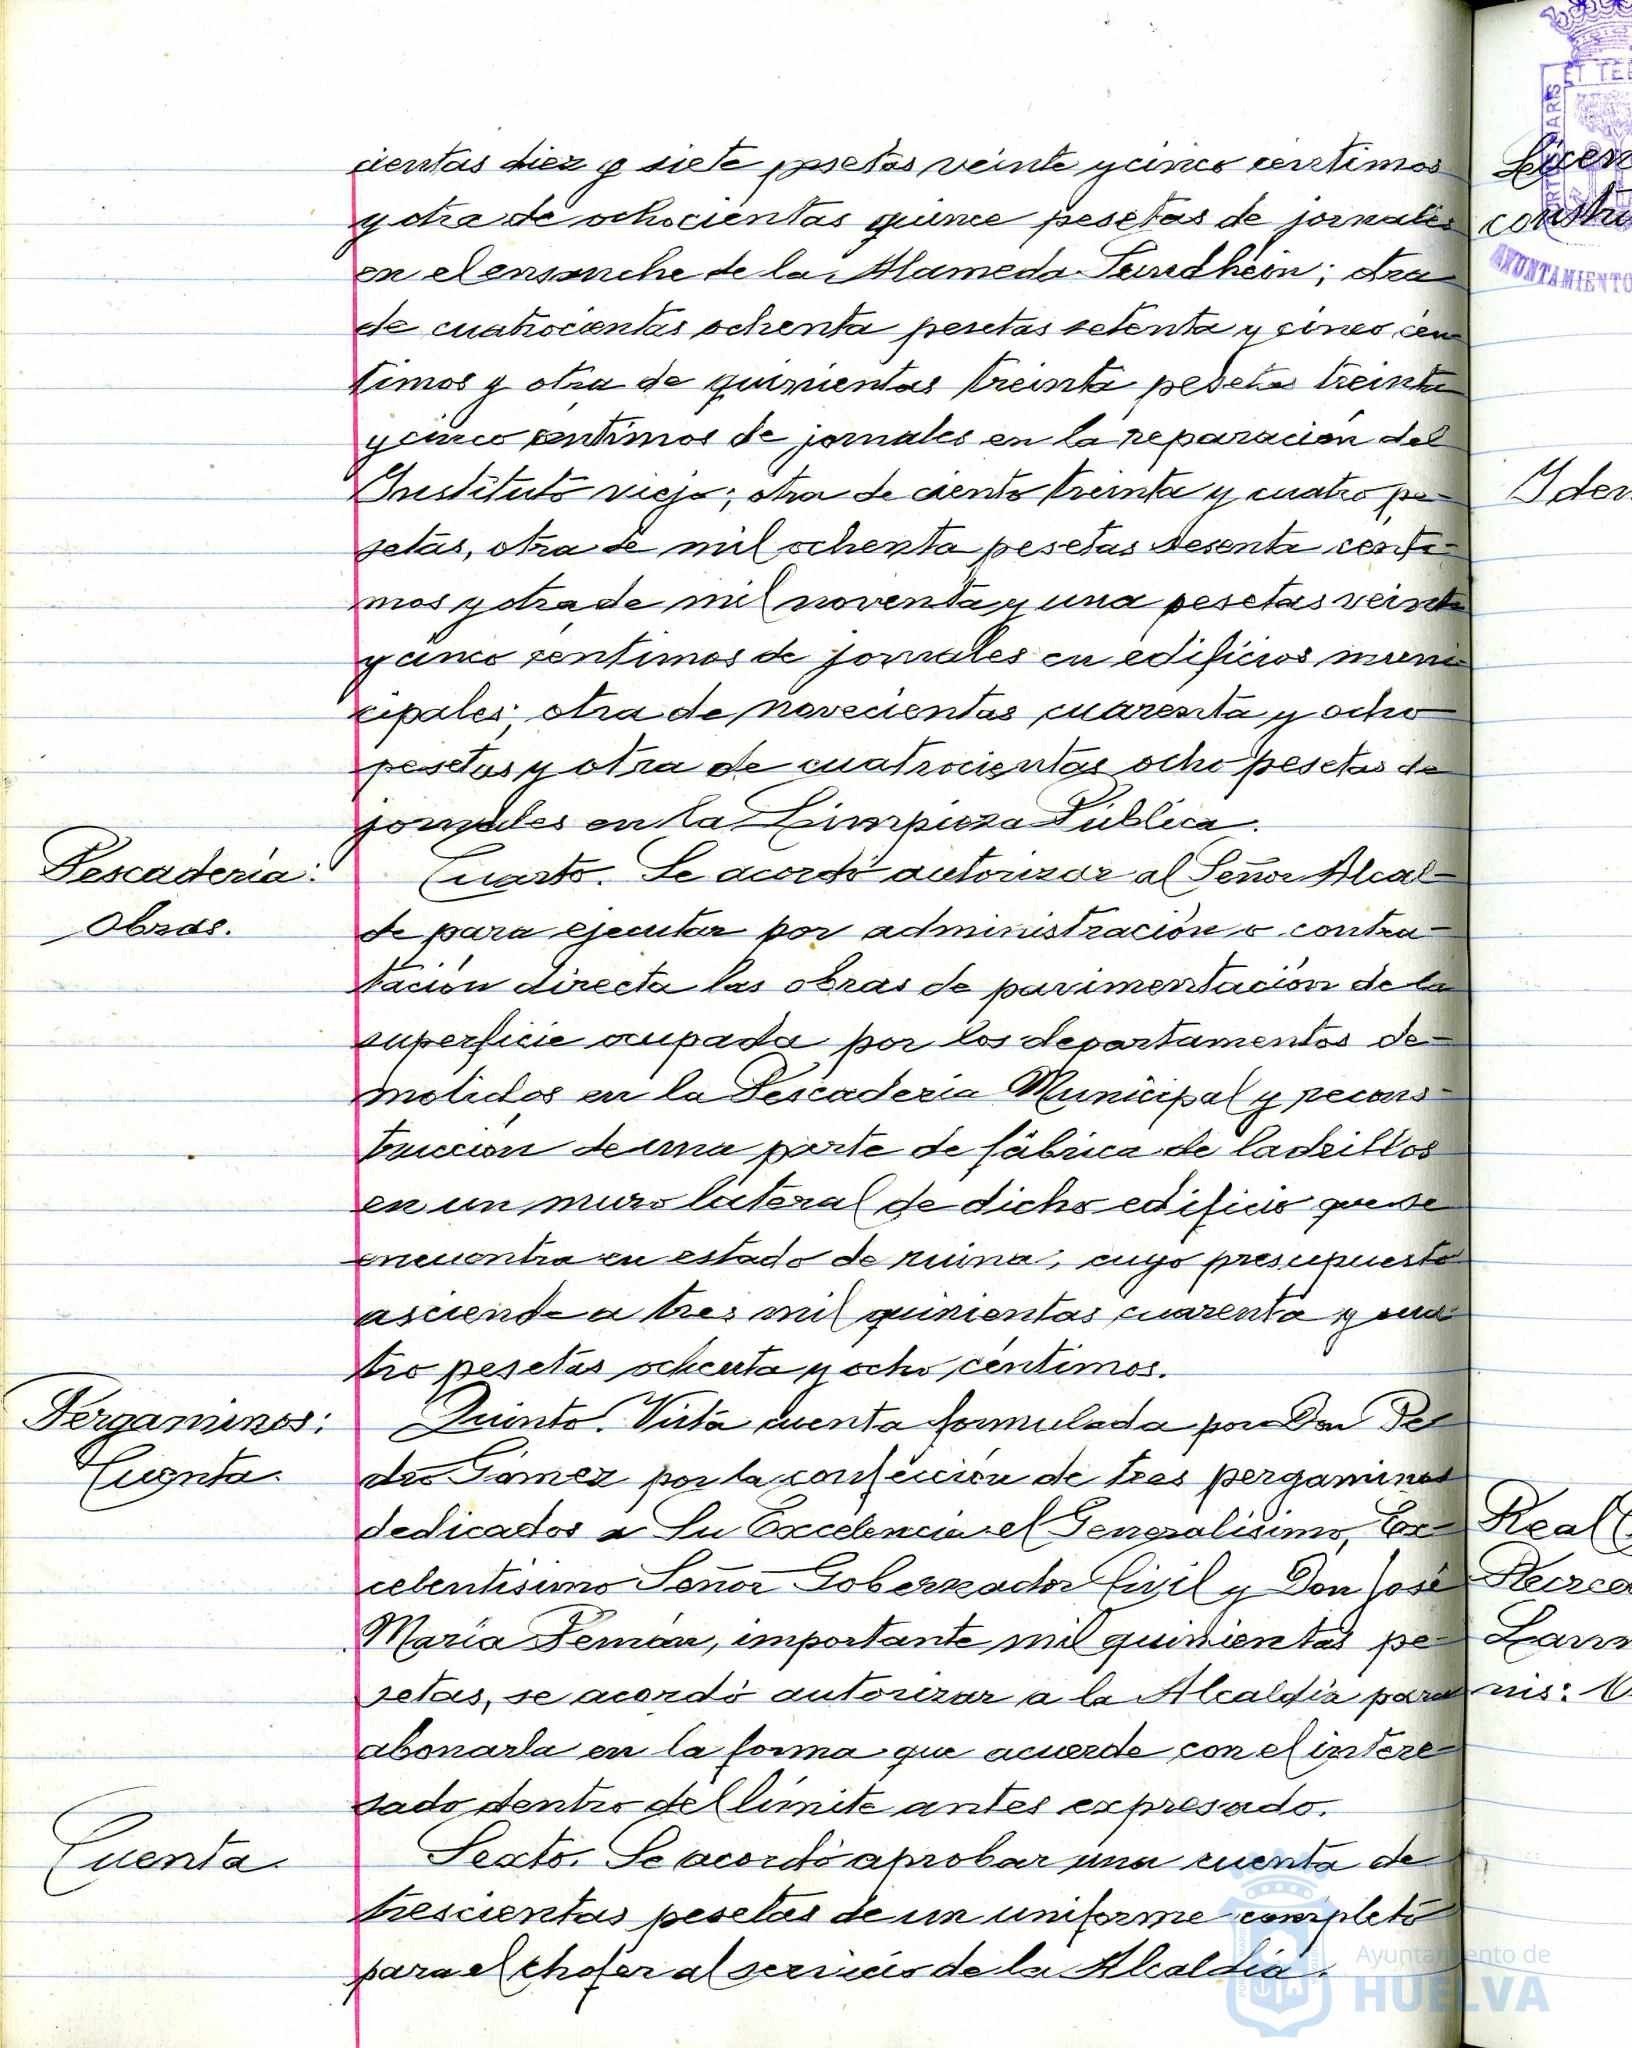 cientas diez y siete pesetas veinte y cinco centimos
y otra de ochocientas quince pesetas de jornales
en el ensanche de la Alameda Sundhein; otra
de cuatrocientas ochenta pesetas setenta y cinco cen
timos y otra de quinientas treinta pesetas treinta
y cinco centimos de jornales en la reparación del
Instituto viejo; otra de ciento treinta y cuatro pe-
setas, otra de mil ochenta pesetas sesenta centi-
mos y otra de mil noventa y una pesetas veinte
y cinco centimos de jornales en edificios muni
cipales; otra de novecientas cuarenta y ocho
pesetas y otra de cuatrocientas ocho pesetas de
jornales en la Limpieza Pública.
Pescadería:
Obras.
Cuarto. Se acordó autorizar al Señor Alcal-
de para ejecutar por administración o contra-
tación directa las obras de pavimentación de la
superficie ocupada por los departamentos de-
molidos en la Pescaderia Municipal y recons-
trucción de una parte de fábrica de ladrillos
en un muro lateral de dicho edificio que se
encuentra en estado de ruina, cuyo presupuesto
asciende a tres mil quinientas cuarenta y cua
tro pesetas ochenta y ocho céntimos.
Pergaminos:
Cuenta.
Quinto. Vista cuenta formulada por Don Pe
dro Gómez por la confección de tres pergaminos
dedicados a Su Excelencia el Generalísimo, Ex-
celentísimo Señor Gobernador Civil y Don José
María Pemán, importante mil quinientas pe-
setas, se acordó autorizar a la Alcaldía para
abonarla en la forma que acuerde con el intere-
sado dentro del límite antes expresado.
Cuenta.
Sexto. Se acordó aprobar una cuenta de
trescientas pesetas de un uniforme completo
para el chofer al servicio de la Alcaldía.
Licen
constru
AYUNTAMIENTO
Iden
Real
Recrea
nis:
Ayuntamiento de
HUELVA